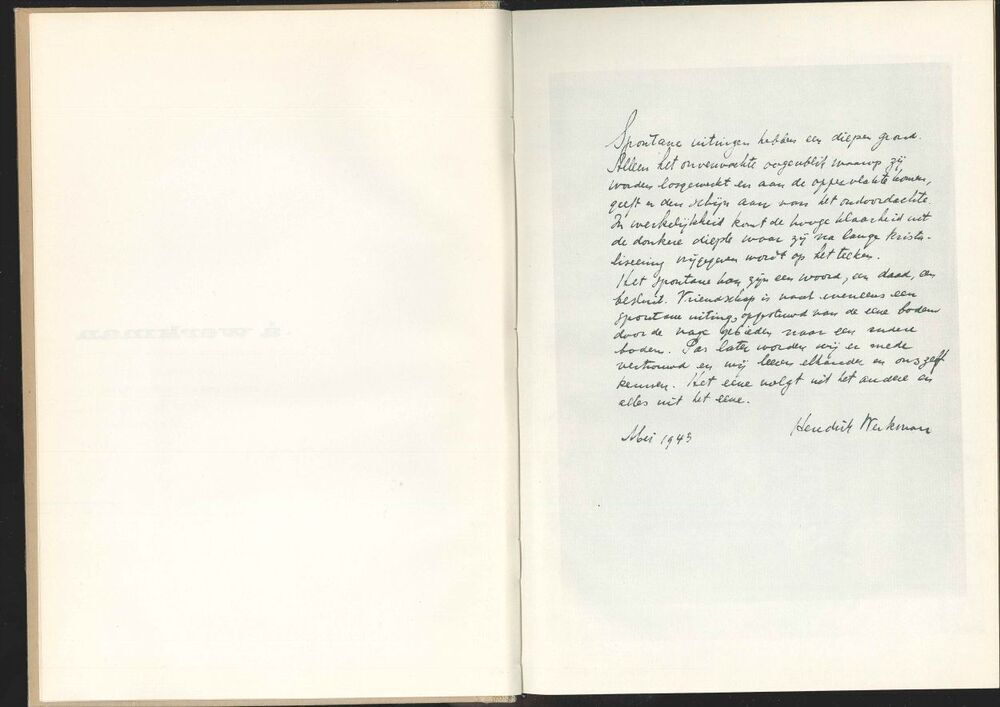 Spontane uitingen hebben een diepen grond.
Alleen het onverwachte oogenblik waarop zij
worden losgewerkt en aan de oppervlakte komen,
geeft er den schijn aan van het ondoordachte.
In werkelijkheid komt de hooge klaarheid uit
de donkere diepte waar zij na lange krista-
liseering vrijgegeven wordt op het teeken.
Het spontane kan zijn een woord, een daad, een
besluit. Vriendschap is vaak eveneens een
spontane uiting, opgestuwd van de eene bodem
door de vage gebieden naar een andere
bodem. Pas later worden wij er mede
vertrouwd en wij leeren elkander en ons zelf
kennen. Het eene volgt uit het andere en
alles uit het eene.
Mei 1943 Hendrik Werkman